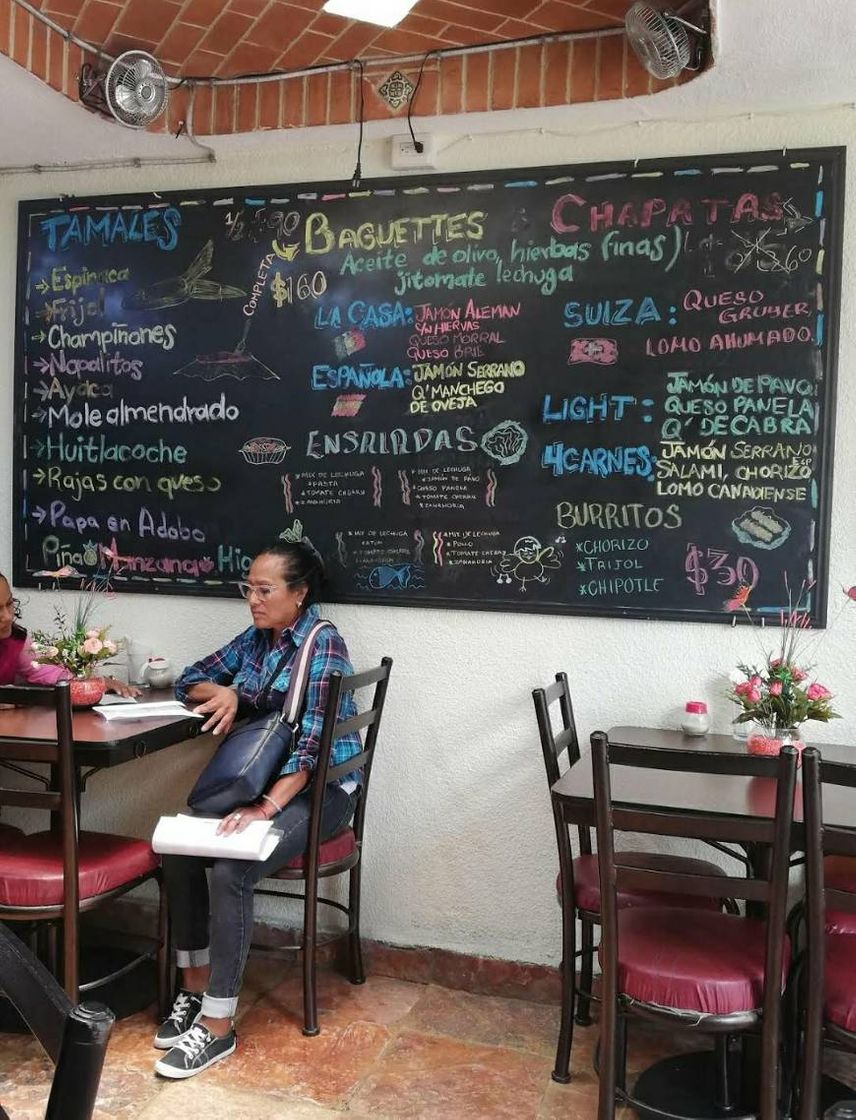 TAMALES
→ Espinaca
→ Frijol
→ Champiñones
→ Nopalitos
→ Ayaca
→ Mole almendrado
→ Huitlacoche
→ Rajas con queso
→ Papa en Adobo
Piña Manzana Higo
1/2 $90
COMPLETA
$160
BAGUETTES
Aceite de olivo, hierbas finas)
jitomate lechuga
LA CASA: JAMÓN ALEMAN
S/N HIERVAS
QUESO MORRAL
QUESO BRIE
ESPAÑOLA: JAMÓN SERRANO
Q' MANCHEGO
DE OVEJA
ENSALADAS
* MIX DE LECHUGA
* PASTA
* TOMATE CHERRY
* ZANAHORIA
* MIX DE LECHUGA
* JAMÓN DE PAVO
* QUESO PANELA
* TOMATE CHERRY
* ZANAHORIA
* MIX DE LECHUGA
* ATÚN
* TOMATE CHERRY
* ZANAHORIA
* MIX DE LECHUGA
* POLLO
* TOMATE CHERRY
* ZANAHORIA
CHAPATAS
60
SUIZA: QUESO
GRUBER,
LOMO AHUMADO.
LIGHT: JAMÓN DE PAVO
QUESO PANELA
Q' DE CABRA
4CARNES: JAMÓN SERRANO
SALAMI, CHORIZO ESP
LOMO CANADIENSE
BURRITOS
*CHORIZO
*FRIJOL
*CHIPOTLE
$30